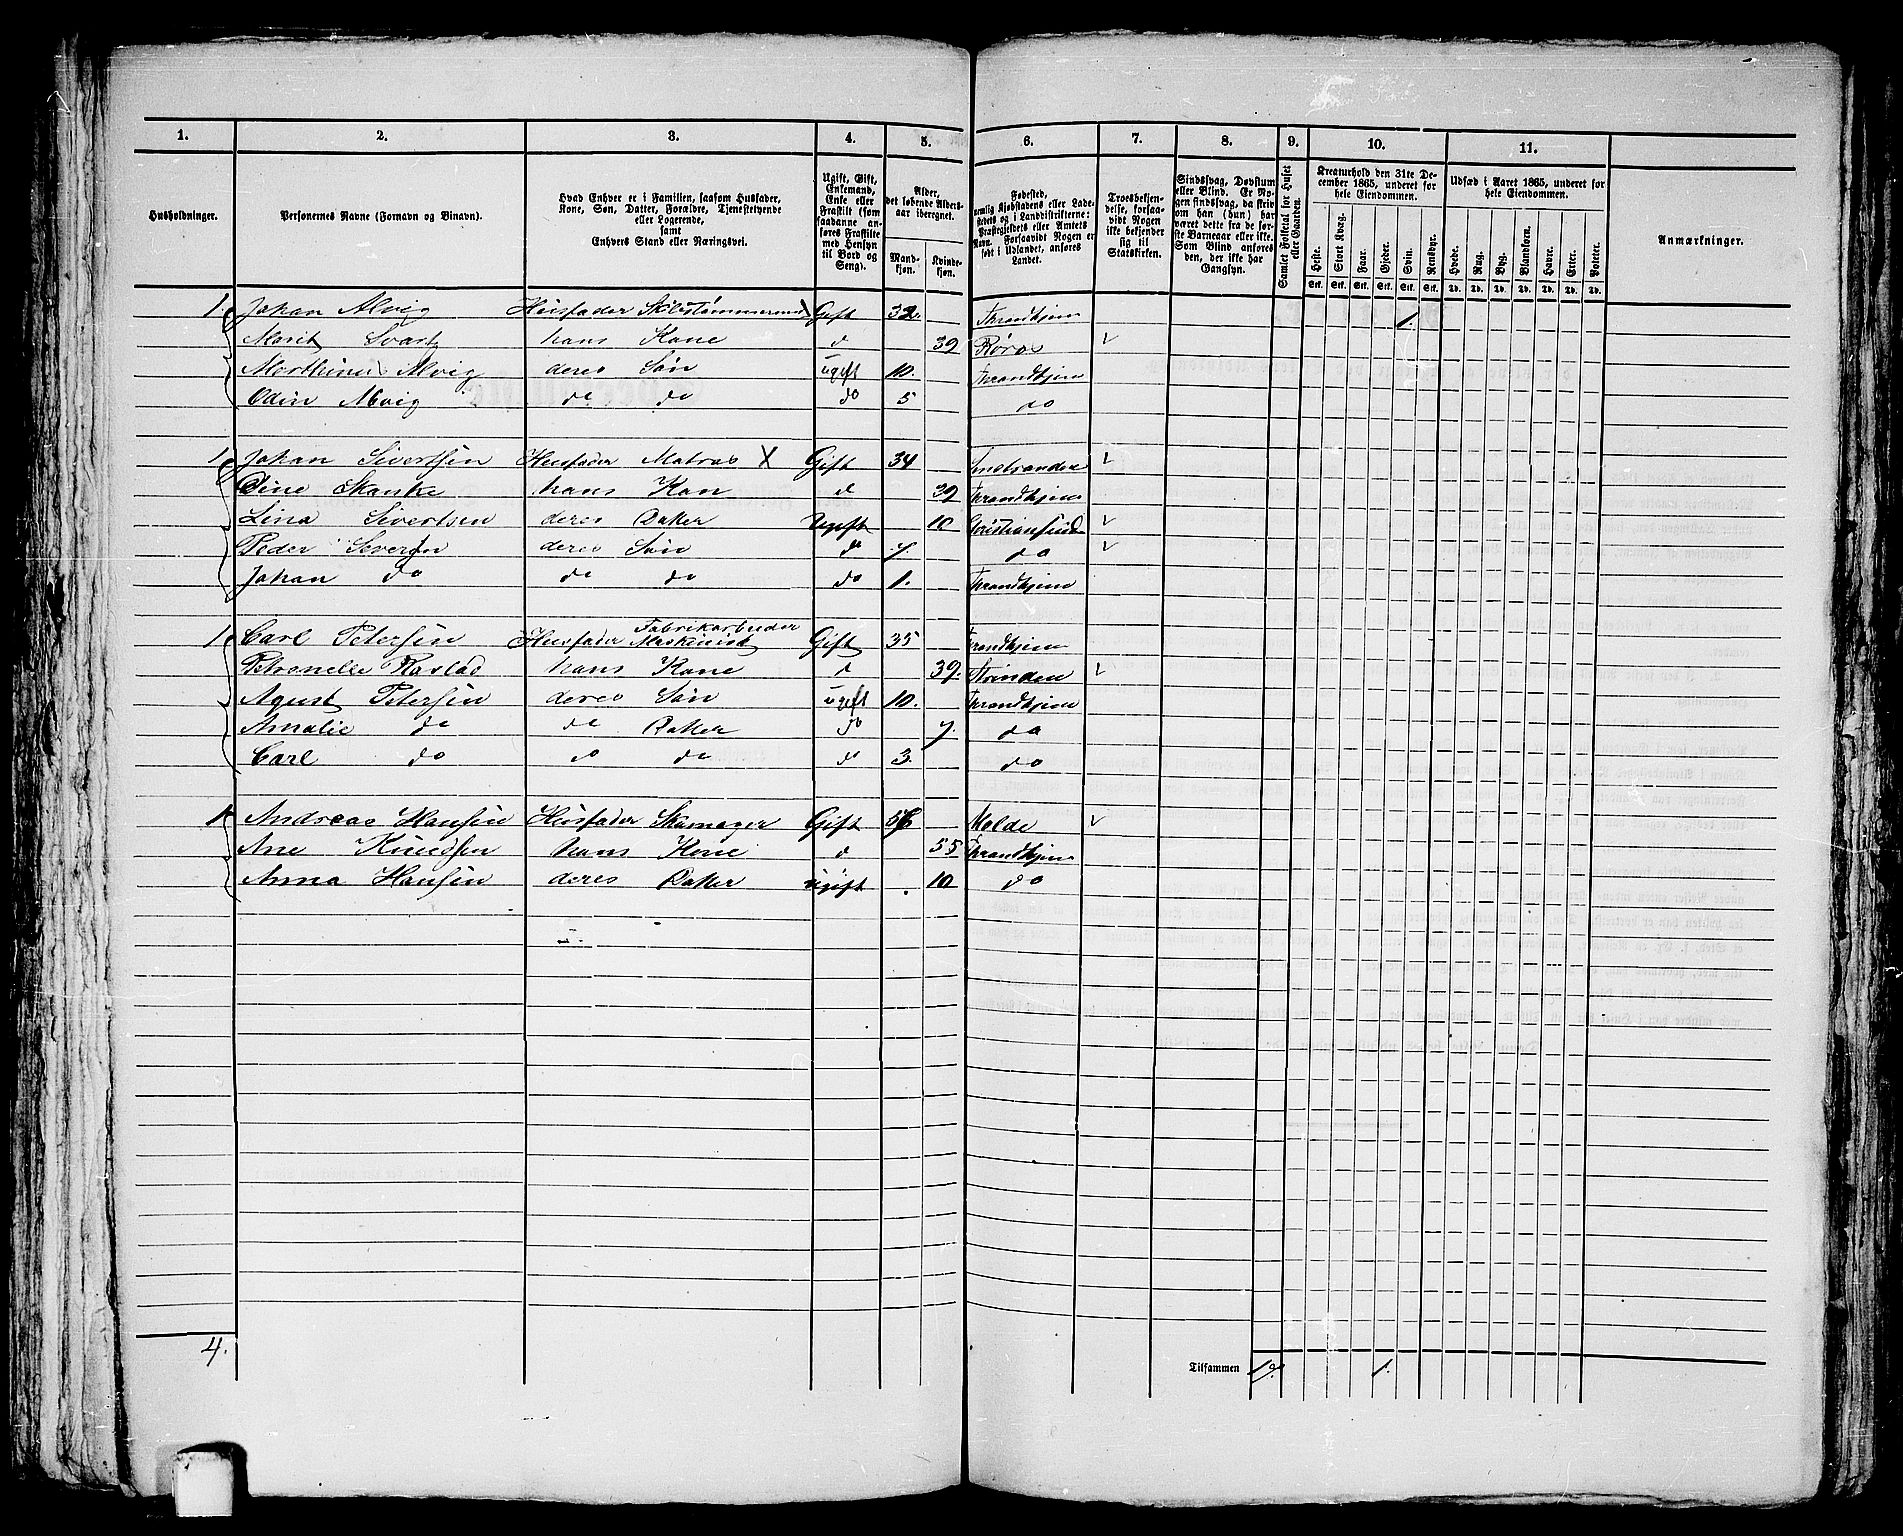 1. 2. 3. 4. 5. 6. 7. 8. 9. 10. 11.
Husholdninger.
Personernes Navne (Fornavn og Binavn).
Hvad Enhver er i Familien, saasom Husfader,
Kone, Søn, Datter, Forældre, Tjenestetyende
eller Logerende,
samt
Enhvers Stand eller Næringsvei.
Ugift, Gift,
Enkemand,
Enke eller
Fraskilt (som
saadanne an-
føres Fraskilte
med Hensyn
til Bord og
Seng).
Alder,
det løbende Alders-
aar iberegnet.
Mand-
kjøn.
Kvinde-
kjøn.
Fødested,
nemlig Kjøbstadens eller Lade-
stedets og i Landdistrikterne:
Præstegjeldets eller Amtets
Navn. Forsaavidt Nogen er
født i Udlandet, anføres
Landet.
Troesbekjen-
delse, forsaa-
vidt Nogen
ikke bekjender
sig til
Statskirken.
Sindssvag, Døvstum
eller Blind. Er No-
gen sindssvag, da skriv
om han (hun) har
været dette fra de før-
ste Barneaar eller ikke.
Som Blind anføres
den, der ikke har
Gangsyn.
Samlet Folketal for Huset
eller Gaarden.
Kreaturhold den 31te De-
cember 1865, underet for
hele Eiendommen.
Heste. Stort Kvæg. Faar. Gjeder. Svin. Rensdyr.
Stk. Stk. Stk. Stk. Stk. Stk.
Udsæd i Aaret 1865, underet for
hele Eiendommen.
Hvede. Rug. Byg. Blandkorn. Havre. Erter. Poteter.
Td. Td. Td. Td. Td. Td. Td.
Anmærkninger.
1. Johan Alvig Husfader X Gift 32. Throndhjem 1.
Marit Svartz hans Kone d 39 Røros
Alvig deres Søn ugift 10. Throndhjem
Odin Alvig do do do 5 do
1. Johan Sivertsen Husfader Matros X Gift 34
Oline Skanke hans Kon d 39 Throndhjem
Lina Sivertsen deres Datter Ugift 10 Christiansund
Peder Severin deres Søn do 7 do
Johan do do do do 1. Throndhjem
1. Carl Petersen Husfader Fabrikarbeider Maskinist Gift 35 Throndhjem
Petronelle hans Kone d 39. Strinden
Agust Petersen deres Søn ugift 10. Throndhjem
Amalie do do Datter do 7. do
Carl do do do do 3. do
1. Andreas Hansen Husfader Skomager Gift 56 Molde
Ane Knudsen hans Kone d 55 Throndhjem
Anna Hansen deres Datter ugift 10 do
4.
Tilsammen 17. 1.